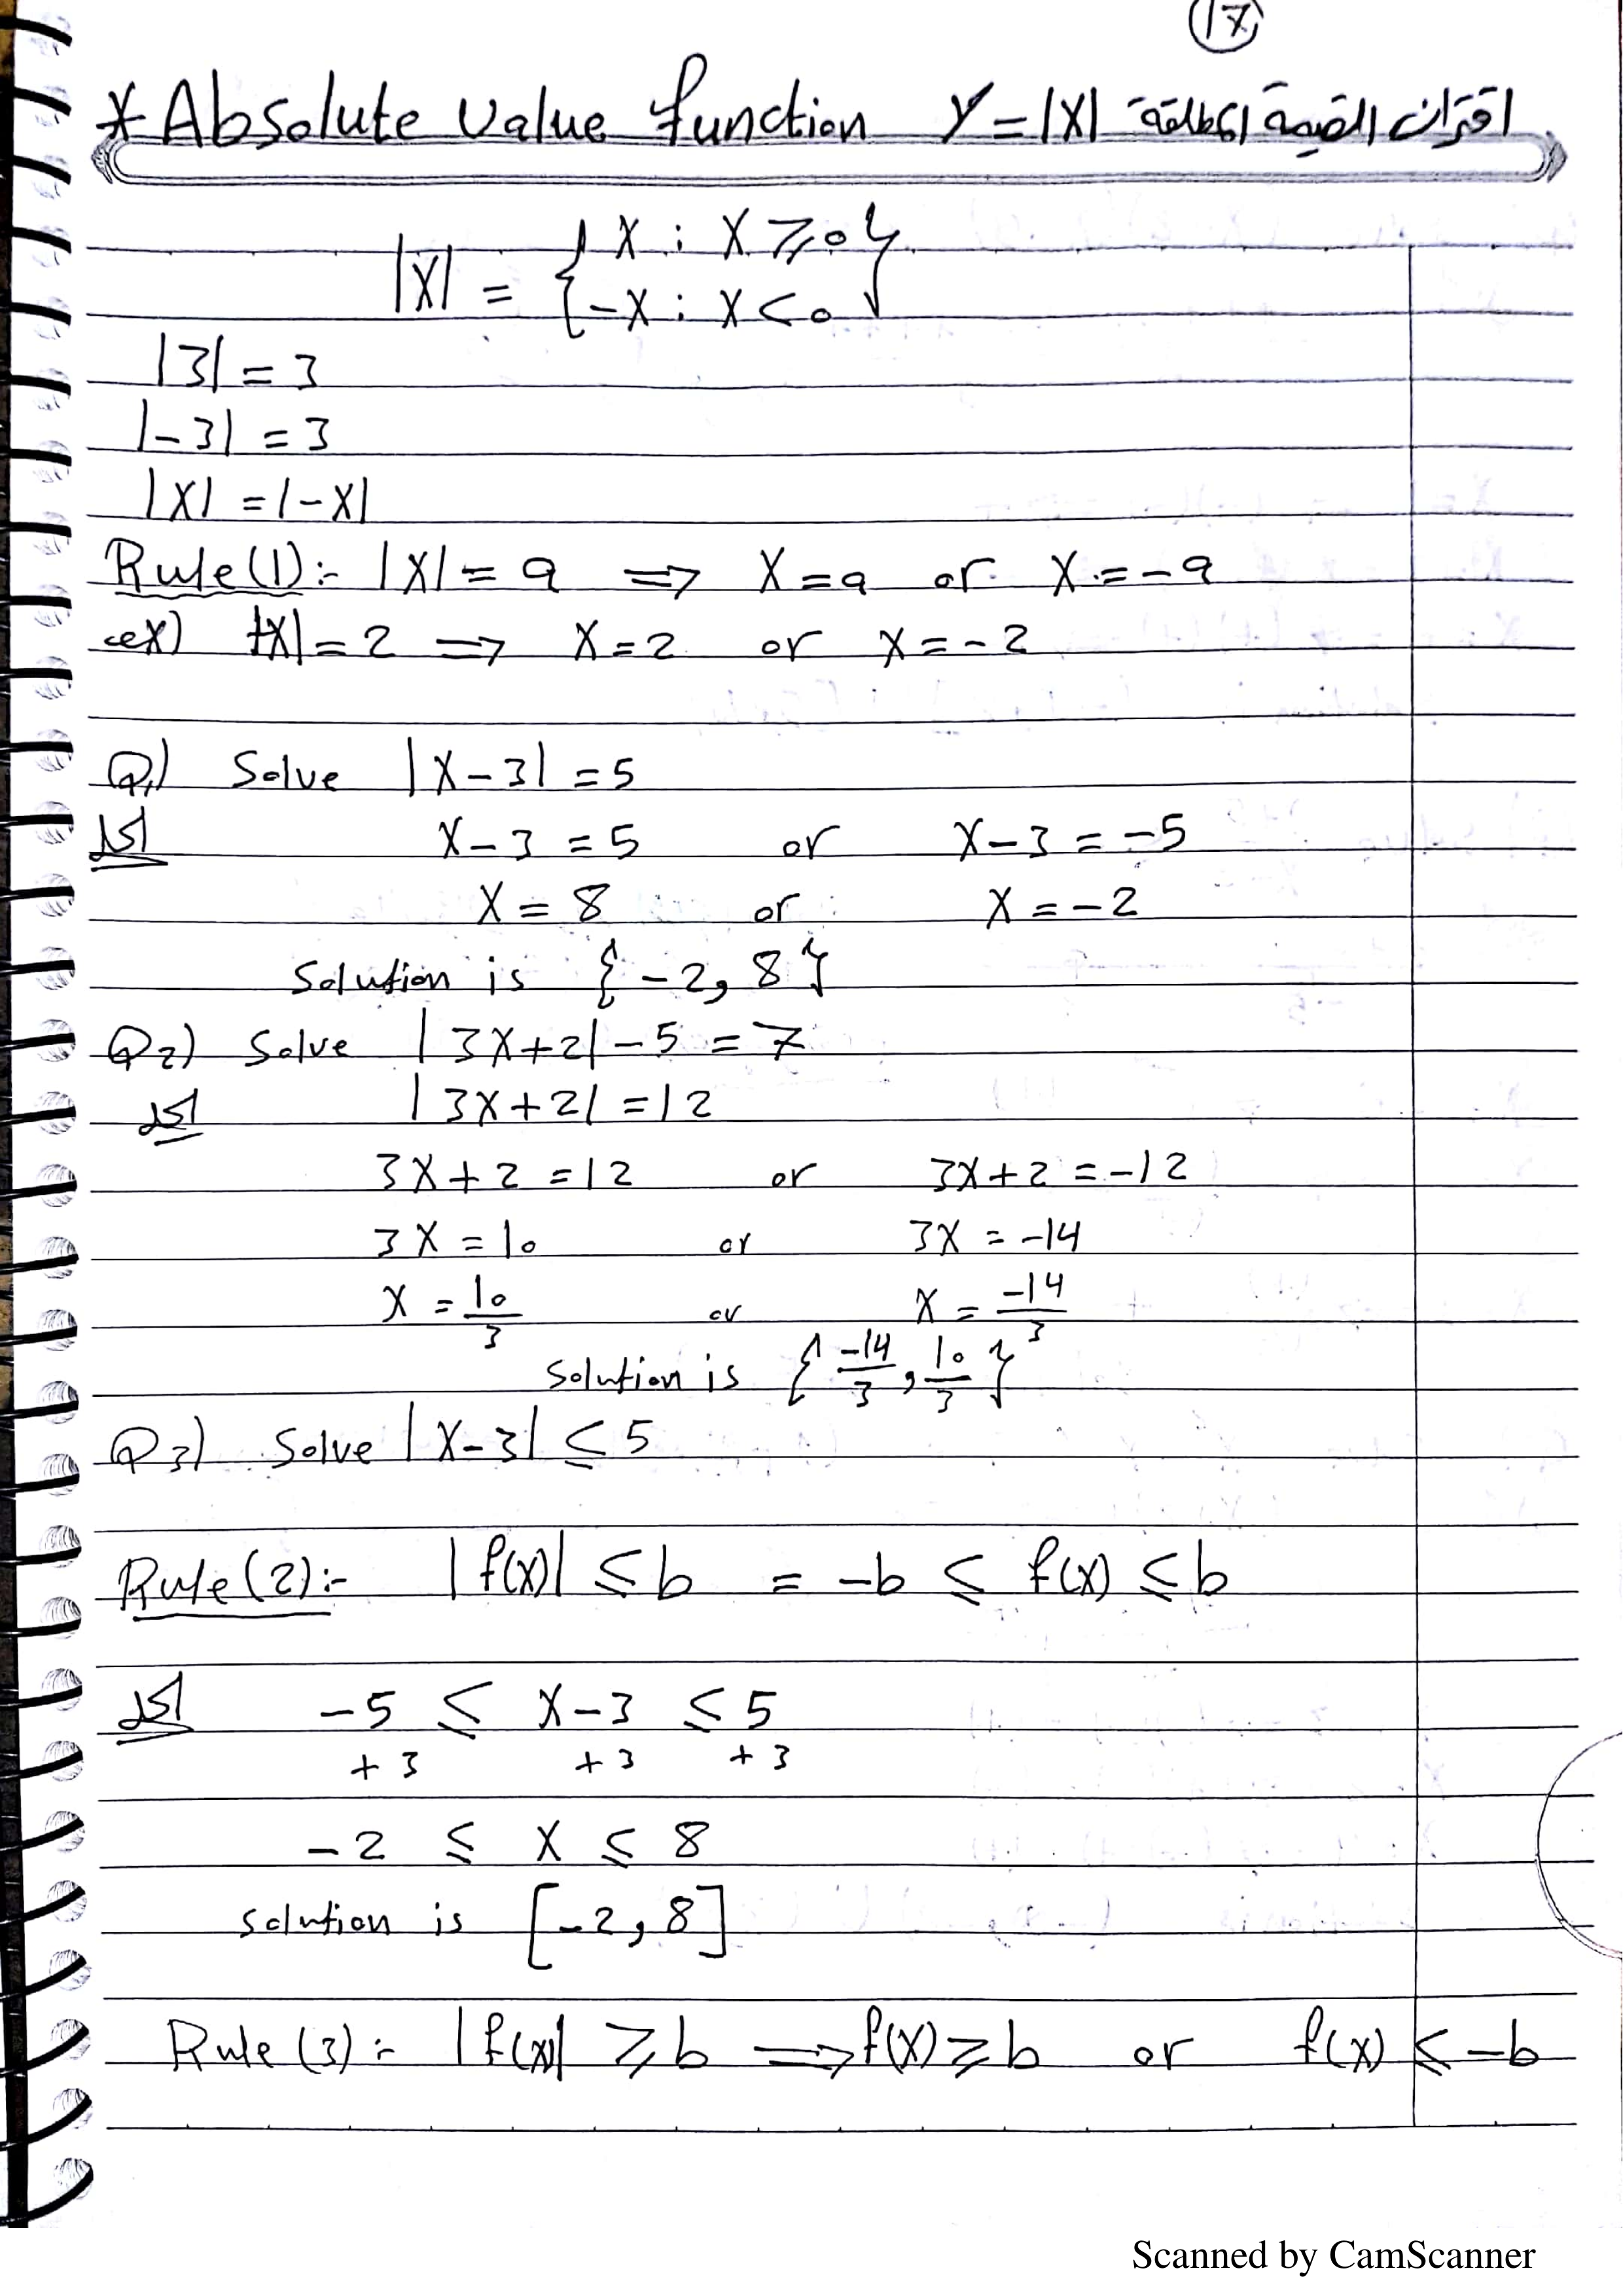 (17)
* Absolute value function y = |x| اقتران القيمة المطلقة
|x| = { x : x ≥ 0
-x : x < 0 }
|3| = 3
|-3| = 3
|x| = |-x|
Rule(1):- |x| = a ⇒ x = a or x = -a
ex) |x| = 2 ⇒ x = 2 or x = -2
Q1) Solve |x-3| = 5
الحل x-3 = 5 or x-3 = -5
x = 8 or x = -2
Solution is {-2, 8}
Q2) Solve |3x+2| - 5 = 7
الحل |3x+2| = 12
3x+2 = 12 or 3x+2 = -12
3x = 10 or 3x = -14
x = 10/3 or x = -14/3
Solution is {-14/3, 10/3}
Q3) Solve |x-3| ≤ 5
Rule(2):- |f(x)| ≤ b = -b ≤ f(x) ≤ b
الحل -5 ≤ x-3 ≤ 5
+3 +3 +3
-2 ≤ x ≤ 8
solution is [-2, 8]
Rule(3):- |f(x)| ≥ b ⇒ f(x) ≥ b or f(x) ≤ -b
Scanned by CamScanner